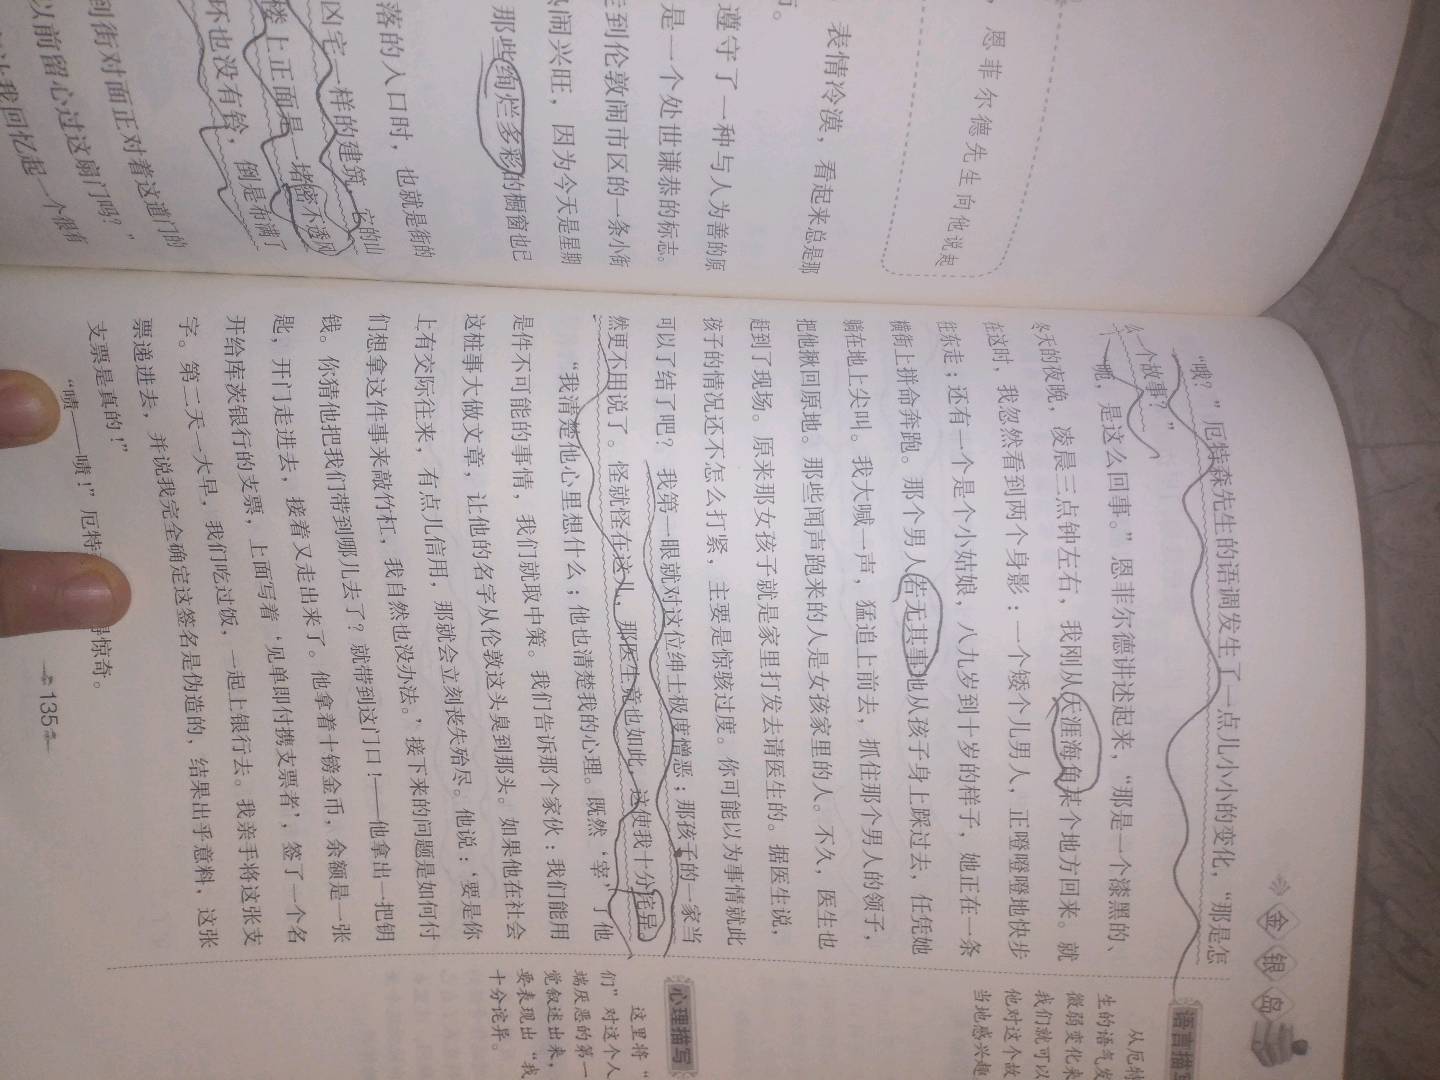 ，恩菲尔德先生向他说起
表情冷漠，看起来总是那
。
遵守了一种与人为善的原
是一个处世谦恭的标志。
走到伦敦闹市区的一条小街
闹兴旺，因为今天是星期
那些绚烂多彩的橱窗也已
落的入口时，也就是街的
凶宅一样的建筑，它的山
楼上正面是一堵密不透风
环也没有铃，倒是布满了
到街对面正对着这道门的
以前留心过这扇门吗？”
让我回忆起一个很有
金银岛
“哦？”厄特森先生的语调发生了一点儿小小的变化，“那是怎
么一个故事？”
“嗯，是这么回事。”恩菲尔德讲述起来，“那是一个漆黑的、
冬天的夜晚，凌晨三点钟左右，我刚从天涯海角某个地方回来。就
在这时，我忽然看到两个身影：一个矮个儿男人，正噔噔噔地快步
往东走；还有一个是个小姑娘，八九岁到十岁的样子，她正在一条
横街上拼命奔跑。那个男人若无其事地从孩子身上踩过去，任凭她
躺在地上尖叫。我大喊一声，猛追上前去，抓住那个男人的领子，
把他揪回原地。那些闻声跑来的人是女孩家里的人。不久，医生也
赶到了现场。原来那女孩子就是家里打发去请医生的。据医生说，
孩子的情况还不怎么打紧，主要是惊骇过度。你可能以为事情就此
可以了结了吧？我第一眼就对这位绅士极度憎恶；那孩子的一家当
然更不用说了。怪就怪在这儿，那医生竟也如此，这使我十分诧异。
“我清楚他心里想什么；他也清楚我的心理。既然‘宰’了他
是件不可能的事情，我们就取中策。我们告诉那个家伙：我们能用
这桩事大做文章，让他的名字从伦敦这头臭到那头。如果他在社会
上有交际往来，有点儿信用，那就会立刻丧失殆尽。他说：‘要是你
们想拿这件事来敲竹杠，我自然也没办法。’接下来的问题是如何付
钱。你猜他把我们带到哪儿去了？就带到这门口！——他拿出一把钥
匙，开门走进去，接着又走出来了。他拿着十镑金币，余额是一张
开给库茨银行的支票，上面写着‘见单即付携支票者’，签了一个名
字。第二天一大早，我们吃过饭，一起上银行去。我亲手将这张支
票递进去，并说我完全确定这签名是伪造的，结果出乎意料，这张
支票是真的！”
“啧——啧！”厄特 得惊奇。
135
语言描写
从厄特
生的语气发
微弱变化来
我们就可以
他对这个故
当地感兴趣
心理描写
这里将“
们”对这个人
端厌恶的第一
觉叙述出来，
要表现出“我
十分诧异。